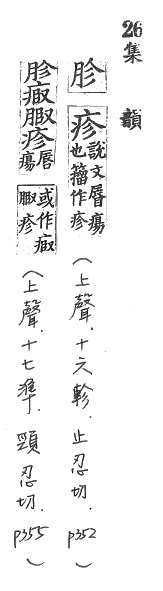 26 集 韻
胗 疹 說文脣瘍也籀作疹 (上聲.十六軫.止忍切.p352)
胗瘕腵疹 脣瘍 或作瘕腵疹 (上聲.十七準.頸忍切.p355)